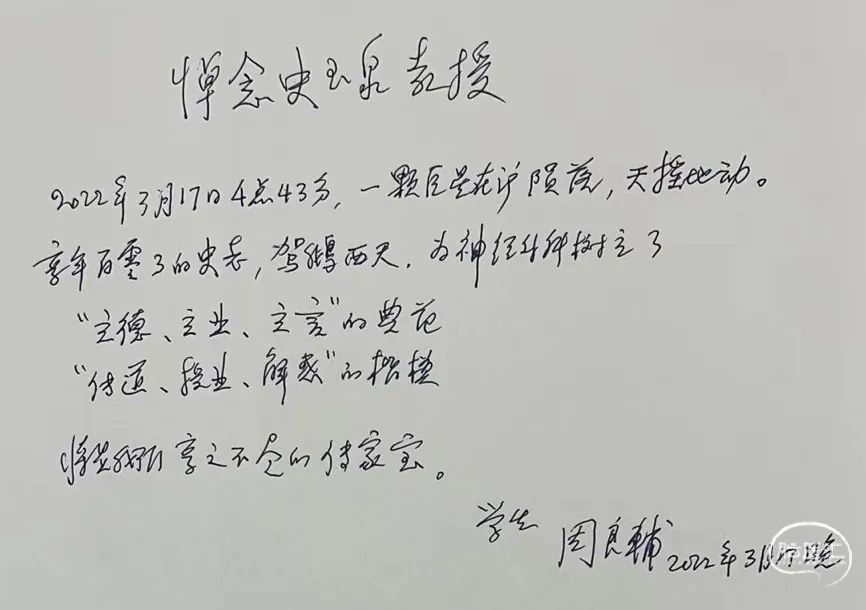 悼念史玉泉教授
2022年3月17日4点43分,一颗巨星在沪陨落,天摇地动。
享年百零3的史老,驾鹤西天,为神经外科树立了
“立德、立业、立言”的典范
“传道、授业、解惑”的楷模
将是我们享之不尽的传家宝。
学生 周良輔 2022年3月17晚